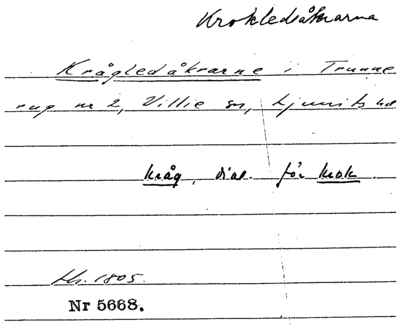 Krokledsåkrarna
Krågledåkrarne i Trunne
rup nr 2, Villie sn, Ljunits hd
kråg, dial. för krok.
Lh. 1805.
Nr 5668.